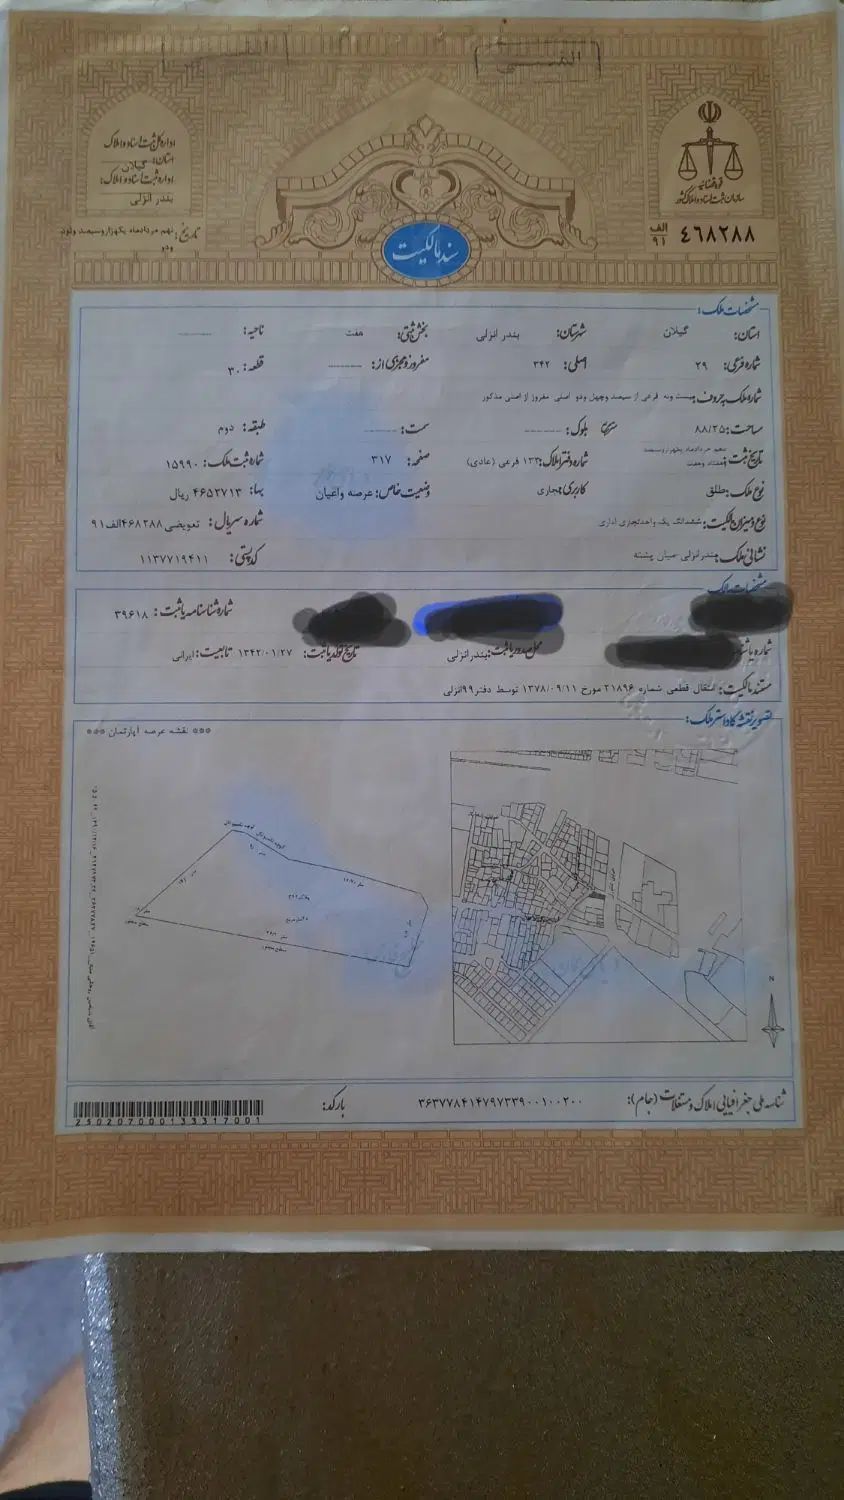 المثنی
قوه قضائیه
سازمان ثبت اسناد و املاک کشور
۴۶۸۲۸۸ الف ۹۱
اداره کل ثبت اسناد و املاک
استان: گیلان
اداره ثبت اسناد و املاک:
بندر انزلی
تاریخ: نهم مردادماه یکهزاروسیصد ونود ودو
سند مالکیت
مشخصات ملک:
استان: گیلان شهرستان: بندر انزلی بخش ثبتی: هفت ناحیه: --------
شماره فرعی: ۲۹ اصلی: ۳۴۲ مفروز و مجزی از: -------- قطعه: ۳۰
شماره ملک به حروف: بیست ونه فرعی از سیصد وچهل ودو اصلی مفروز از اصلی مذکور
مساحت: ۸۸/۲۵ بلوک: -------- سمت: -------- طبقه: دوم
تاریخ ثبت: مردادماه یکهزاروسیصد وهفتاد وهفت شماره دفتر املاک: ۱۳۳ فرعی (عادی) صفحه: ۳۱۷ شماره ثبت ملک: ۱۵۹۹۰
نوع ملک: طلق کاربری: تجاری وضعیت خاص: عرصه واعیان بها: ۴۶۵۲۷۱۳ ریال
نوع و میزان مالکیت: ششدانگ یک واحدتجاری اداری شماره سریال: تعویضی ۴۶۸۲۸۸الف۹۱
نشانی ملک: بندرانزلی-میان پشته کد پستی: ۱۱۳۷۷۱۹۴۱۱
مشخصات مالک
شماره شناسنامه یا ثبت: ۳۹۶۱۸
محل صدور یا ثبت: بندرانزلی تاریخ تولد یا ثبت: ۱۳۴۲/۰۱/۲۷ تابعیت: ایرانی
مستند مالکیت: انتقال قطعی شماره ۲۱۸۹۶ مورخ ۱۳۷۸/۰۹/۱۱ توسط دفتر۹۹انزلی
تصویر نقشه کاداستر ملک:
*** نقشه عرصه آپارتمان ***
N
شناسه ملی جغرافیایی املاک و مستغلات (جام): ۳۶۳۷۷۸۴۱۴۷۹۷۳۳۹۰۰۱۰۰۲۰۰
بارکد:
250207000133317001